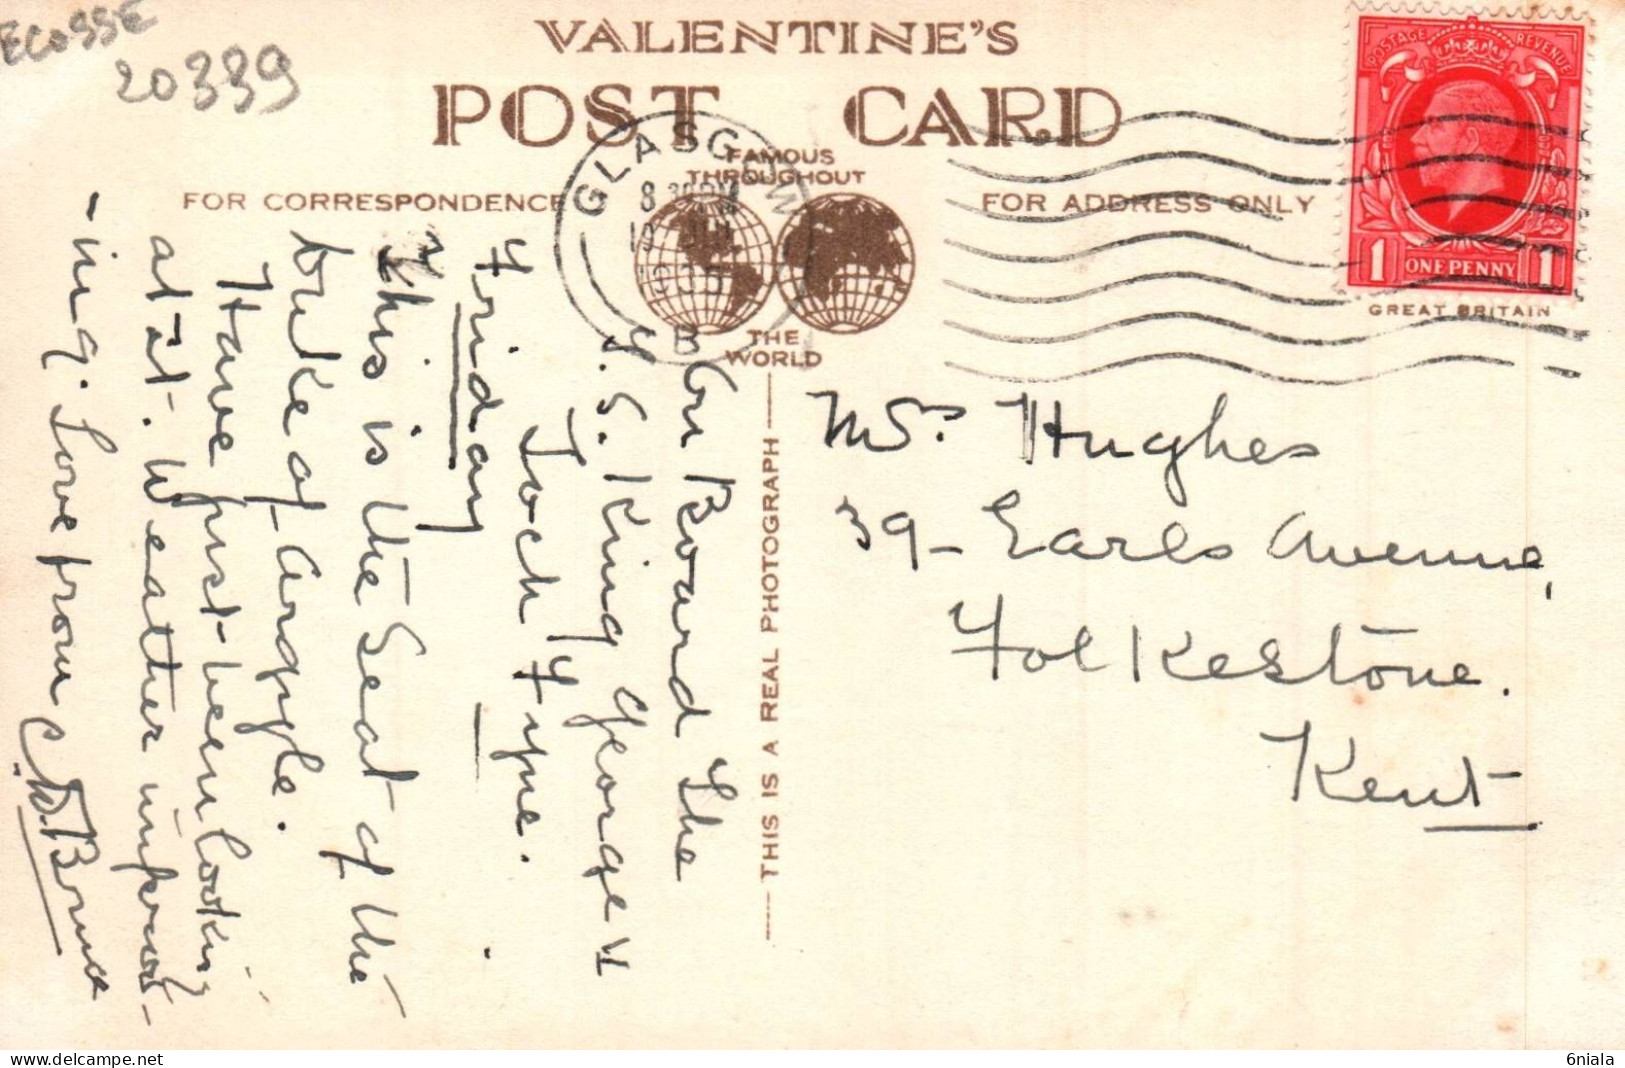 ECOSSE
20339
VALENTINE'S
POST CARD
FAMOUS
THROUGHOUT
THE
WORLD
FOR CORRESPONDENCE
FOR ADDRESS ONLY
GLASGOW
8 30PM
1935
B
POSTAGE REVENUE
1 ONE PENNY 1
GREAT BRITAIN
THIS IS A REAL PHOTOGRAPH
On Board the
T.S. King George V
Loch Fyne.
Friday
This is the Seat of the
Duke of Argyle.
Have just been looking
at it. Weather improv-
-ing. Love from
Mrs. Hughes
39- Earls Avenue,
Folkestone.
Kent
website-www.delcampe.net
6niala